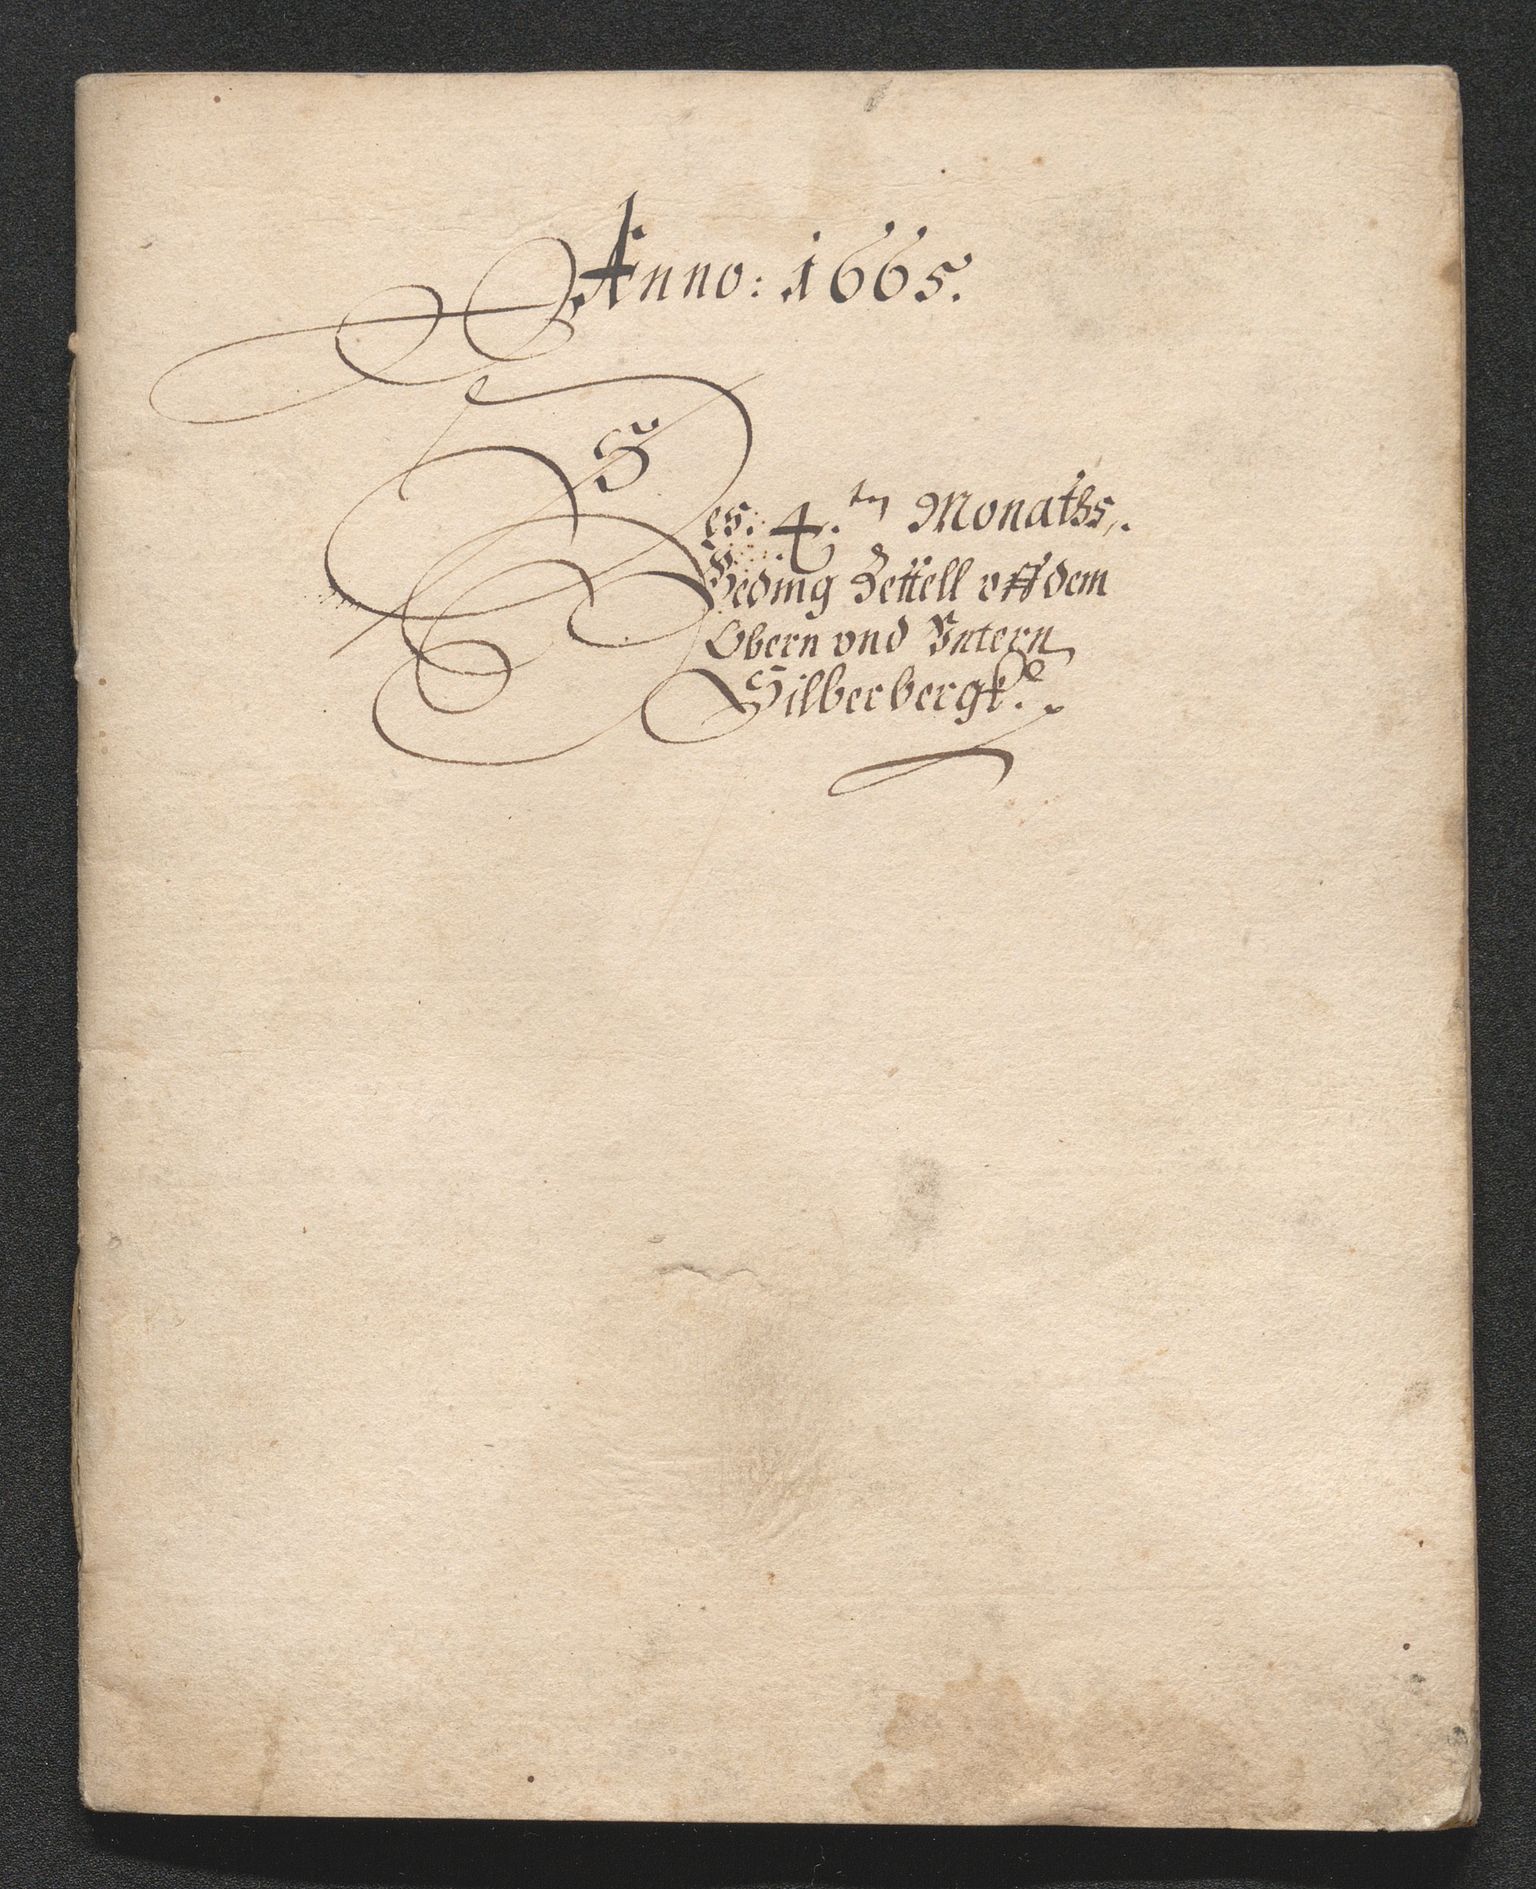 Anno: 1665.
Des: 4.ten Monaths,.
Geding Zettell vff dem
Obern vnd Vntern
Silberbergk.